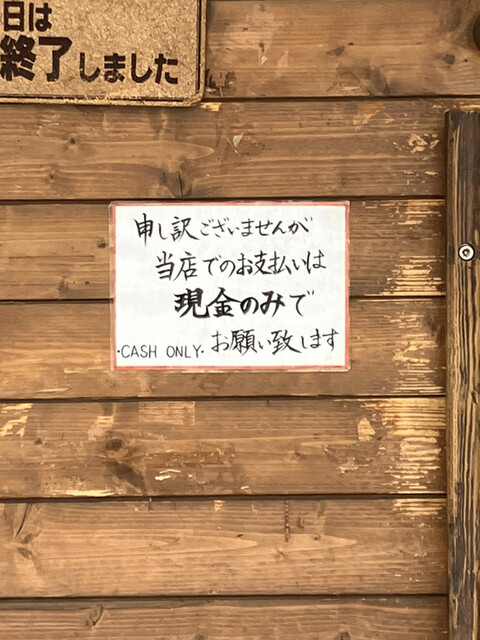 日は
終了しました
申し訳ございませんが
当店でのお支払いは
現金のみで
・CASH ONLY・お願い致します